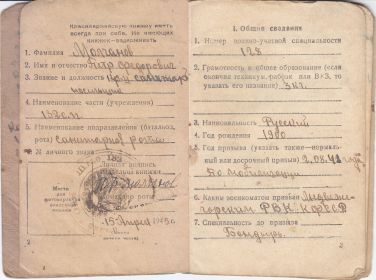 Красноармейскую книжку иметь
всегда при себе. Не имеющих
книжек—задерживать
1. Фамилия Молчанов
2. Имя и отчество Петр Федорович
3. Звание и должность кр-ц санитар
носильщик
4. Наименование части (учреждения)
5. Наименование подразделения (батальон,
рота) санитарная рота
№ личного знака
Личная подпись
владельца книжки
Место
для
фотокарточки
Командир роты
15 апреля 1945 г.
2
I. Общие сведения
1. Номер военно-учетной специальности
128
2. Грамотность и общее образование (если
окончил техникум, рабфак или ВУЗ, то
указать его название) 3 кл.
3. Национальность Русский
4. Год рождения 1900
5. Год призыва (указать также—нормаль-
ный или досрочный призыв) 2.08.41 года
По мобилизации
6. Каким военкоматом призван Медвежье-
горским РВК КФССР
7. Специальность до призыва
Бондарь
2